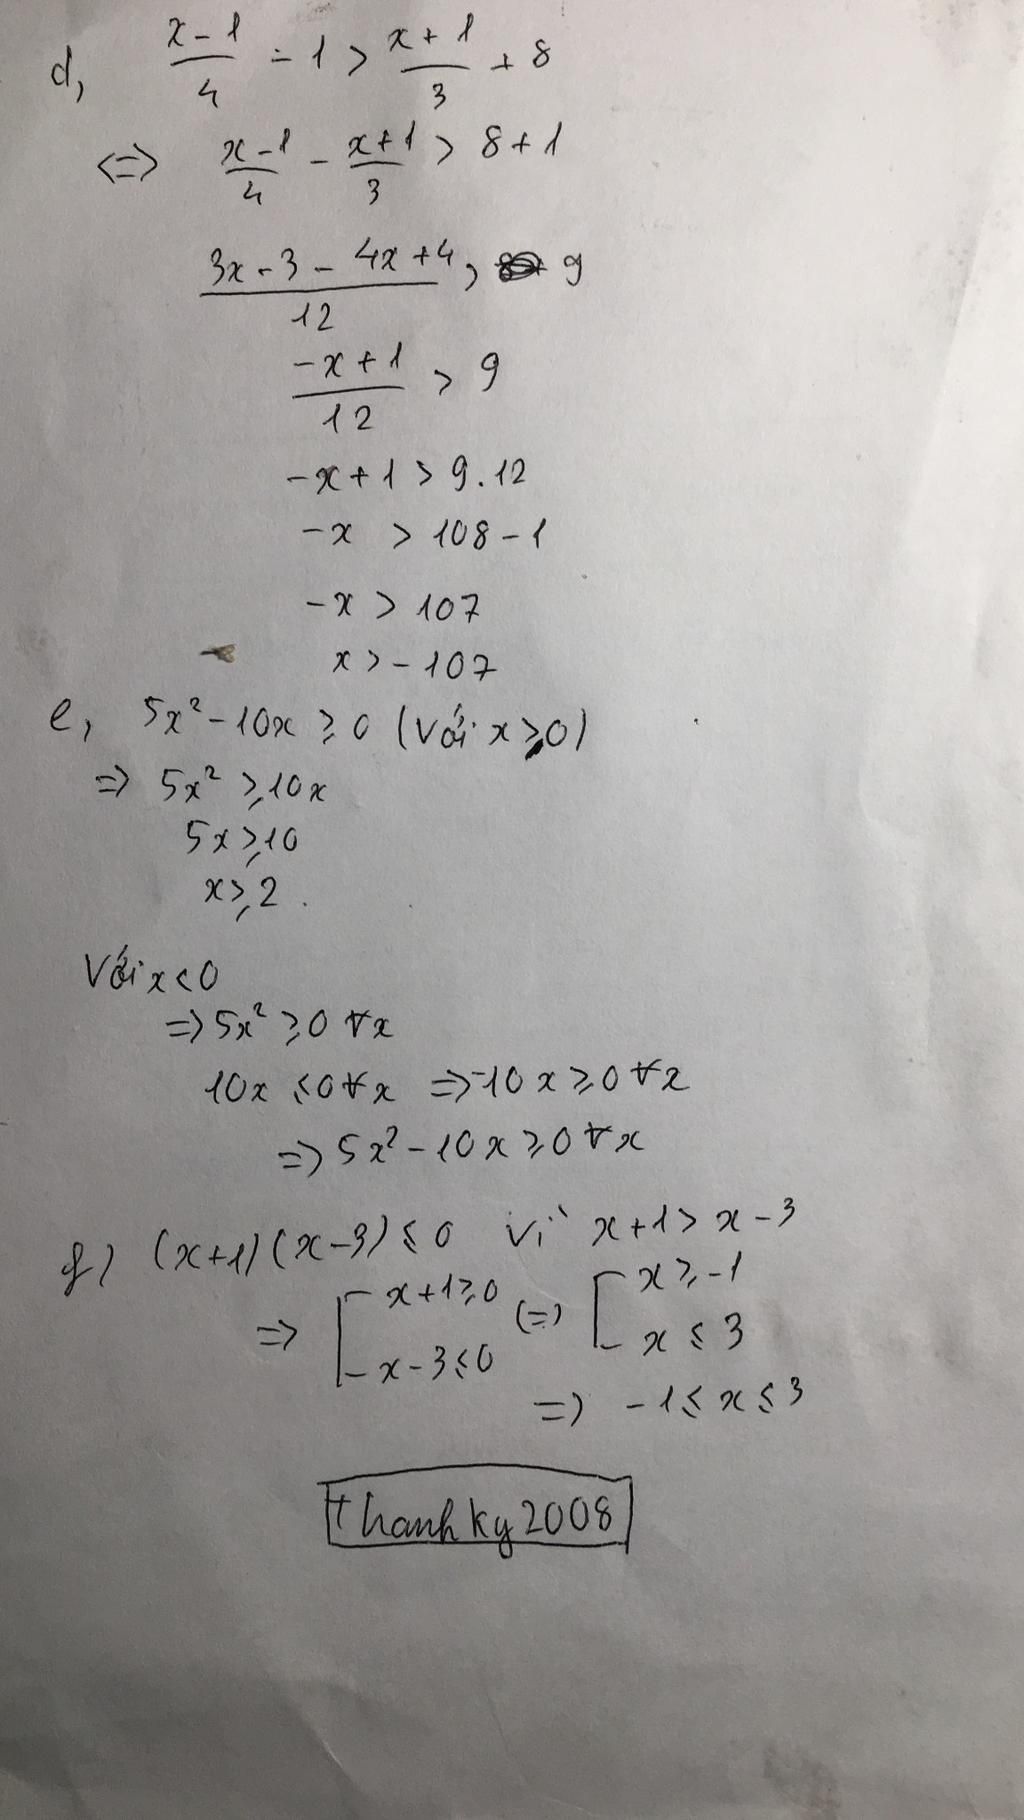 d, \frac{x-1}{4} - 1 > \frac{x+1}{3} + 8
<=> \frac{x-1}{4} - \frac{x+1}{3} > 8 + 1
\frac{3x-3-4x+4}{12} > 9
\frac{-x+1}{12} > 9
-x + 1 > 9.12
-x > 108 - 1
-x > 107
x > -107
e, 5x² - 10x ≥ 0 (Với x ≥ 0)
=> 5x² ≥ 10x
5x ≥ 10
x ≥ 2.
Với x < 0
=> 5x² ≥ 0 ∀x
10x ≤ 0 ∀x => -10x ≥ 0 ∀x
=> 5x² - 10x ≥ 0 ∀x
f) (x+1)(x-3) ≤ 0 Vì x+1 > x-3
=> [ x+1 ≥ 0 (=) [ x ≥ -1
x-3 ≤ 0 x ≤ 3
=) -1 ≤ x ≤ 3
thanhky2008